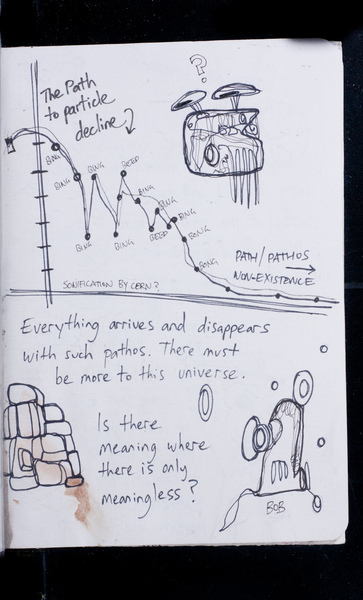 ?
The Path
to particle
decline
BING
BING
BING
BEEP
BING
BING
BING
BING
BING
BEEP
BONG
BONG
PATH/PATHOS
NON-EXISTENCE
SONIFICATION BY CERN?
Everything arrives and disappears
with such pathos. There must
be more to this universe.
Is there
meaning where
there is only
meaningless?
BOB